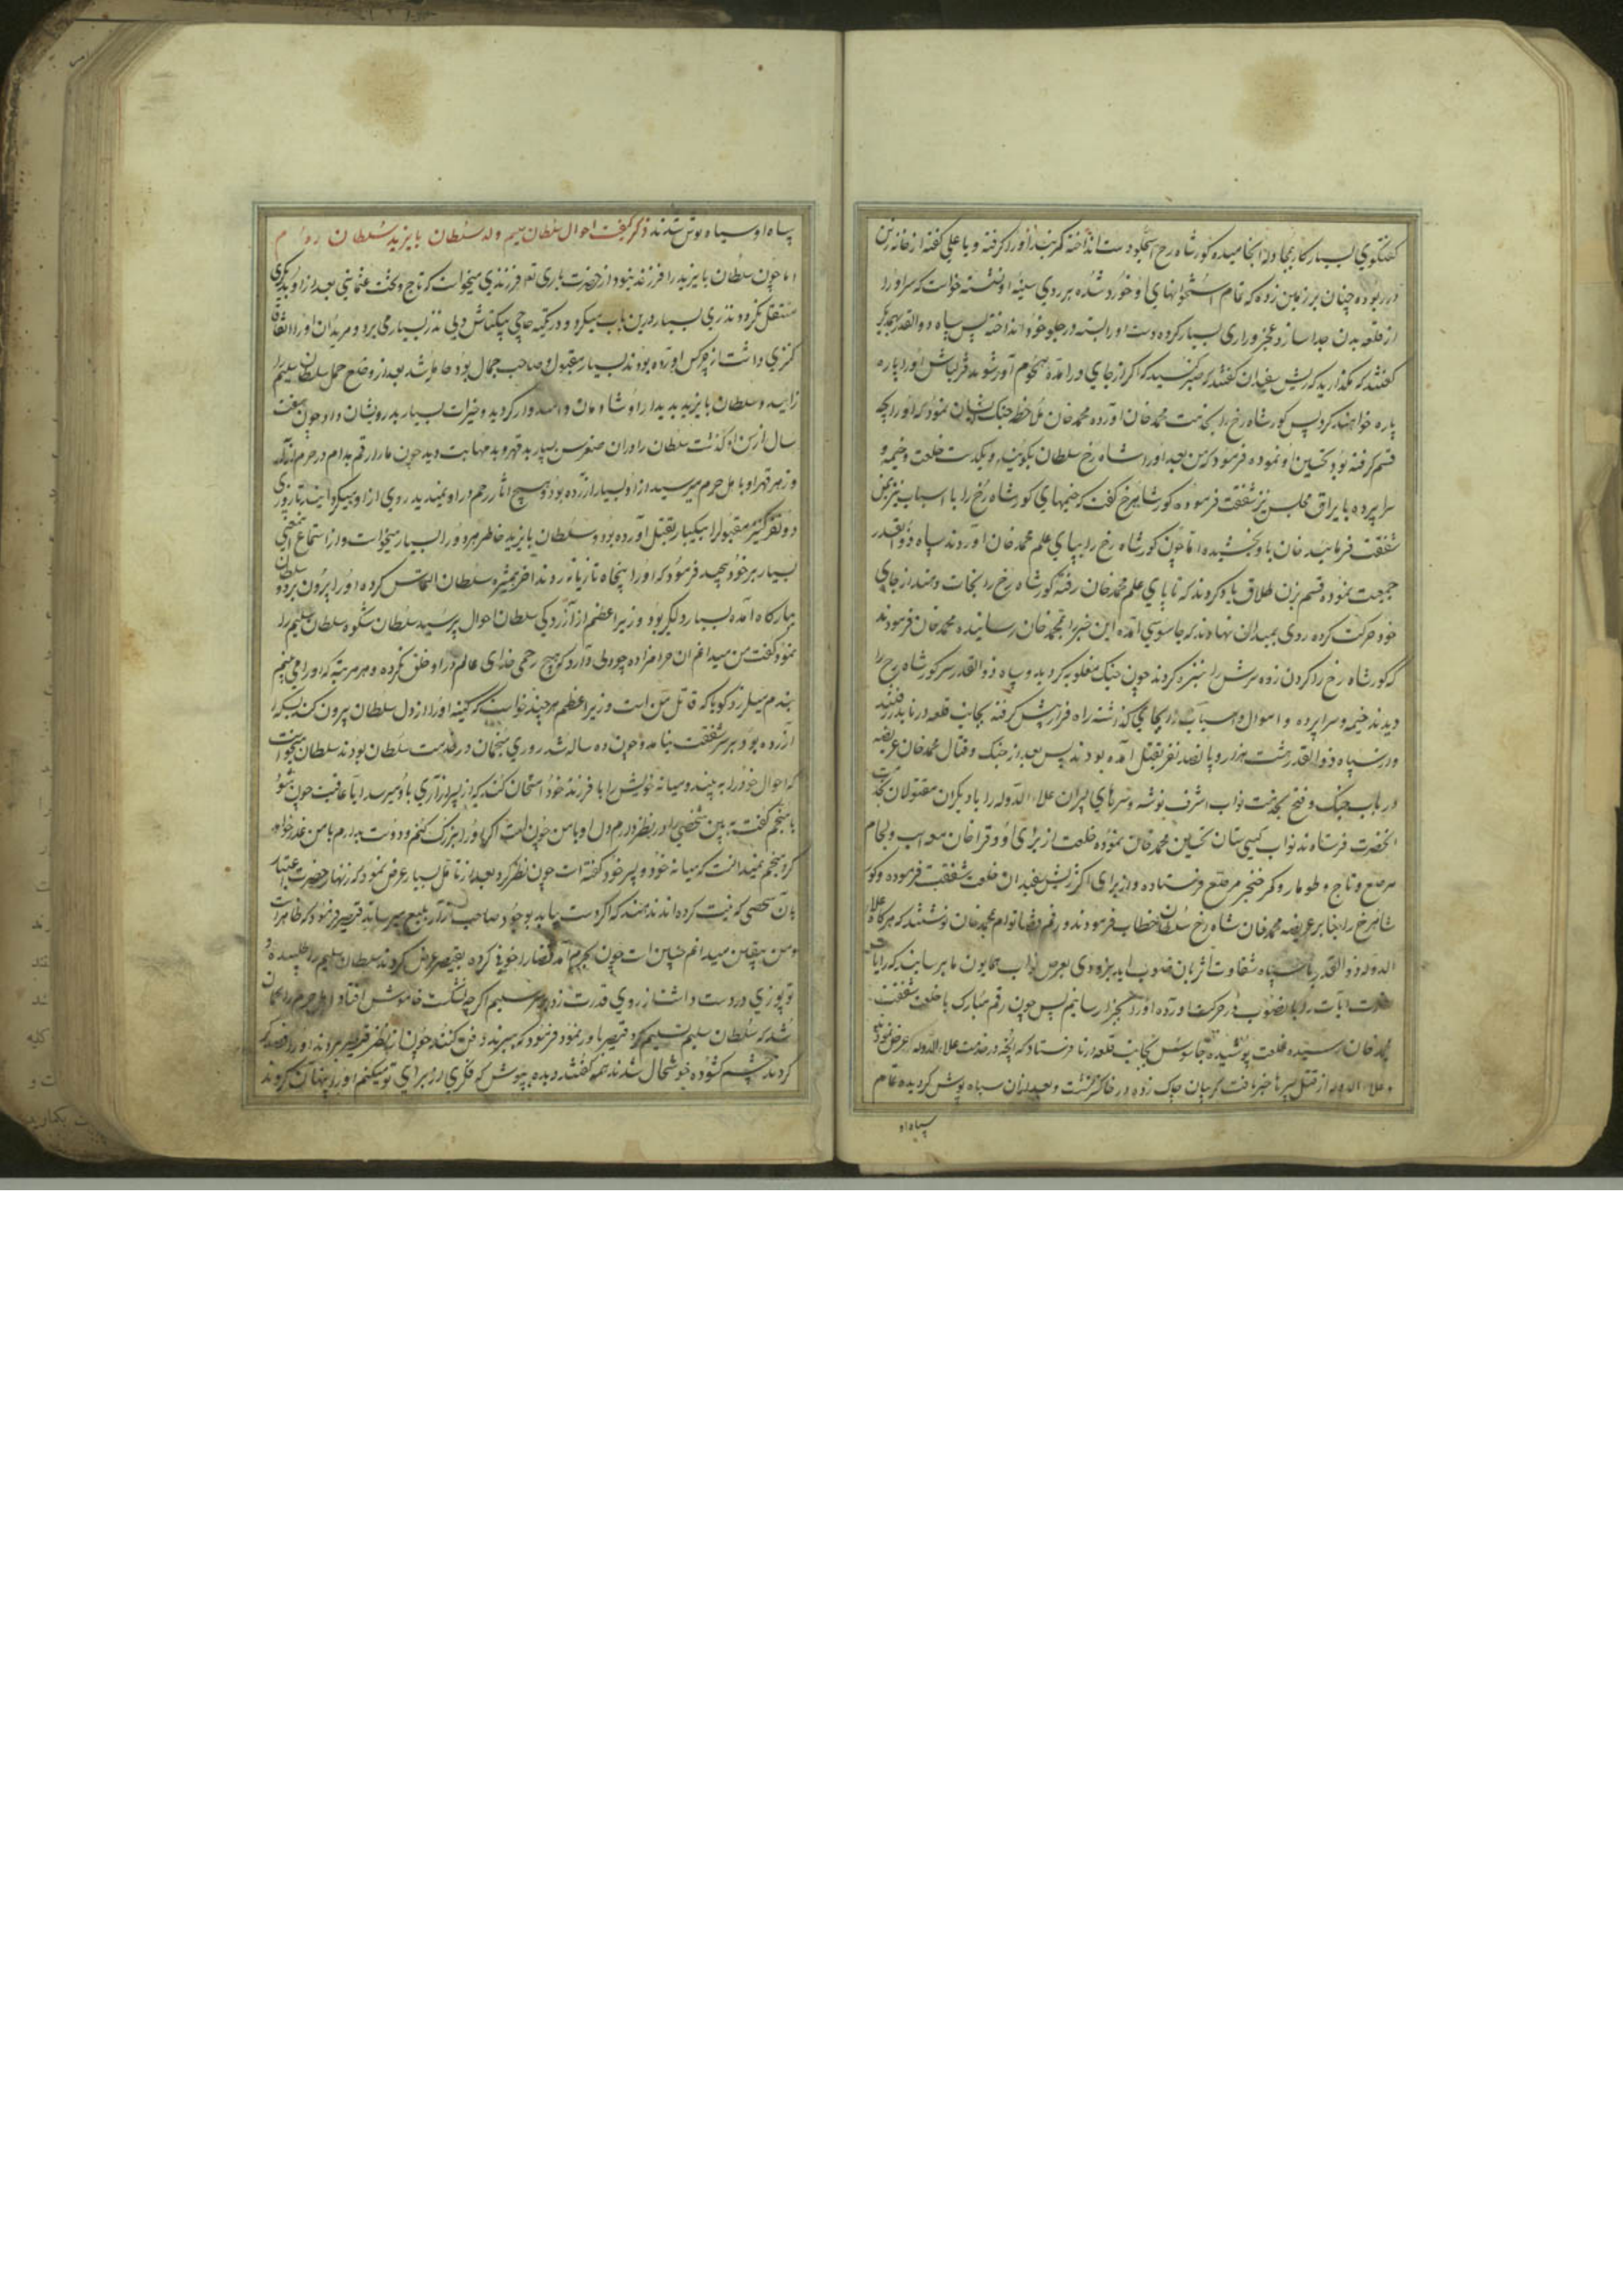 گفتگوی بسیار کار بمجادله انجامیده کور شاه رخ دست انداخته کمربند او را گرفته و یا علی گفته از خانه زین
در ربوده چنان بر زمین زده که تمام استخوانهای او خورد شده بر روی سینه او نشسته خواست که سر او را
از قلعه بدن جدا سازد عجز و زاری بسیار کرده دست او را بسته در جلو خود انداخته پس سپاه ذوالقدر
گفتند که مگذارید که ریش سفیدان گفتند که صبر کنید که اگر از جای در آمده هجوم آور شوید قزلباش او را پاره
پاره خواهند کرد پس کور شاه رخ را بخدمت محمد خان آورده محمد خان ملاحظه جنگ ایشان نموده که او را
قسم گرفته بود تحسین او نموده فرمود که من بعد او را شاه رخ سلطان بگویند و یکدست خلعت و خیمه و
سراپرده با یراق مجلس نیز شفقت فرموده کور شاهرخ گفت که خیمهای کور شاه رخ را با اسباب نیز بمن
شفقت فرمایند خان باو بخشیده اما چون کور شاه رخ را بپای علم محمد خان آوردند سپاه ذوالقدر
جمعیت نموده قسم بزن طلاق یاد کردند که تا پای علم محمد خان رفته کور شاه رخ را نجات دهند از جای
خود حرکت کرده روی بمیدان نهادند که جاسوسی آمده این خبر را بمحمد خان رسانیده محمد خان فرمودند
که کور شاه رخ را گردن زده سرش را بنیزه کردند چون جنگ مغلوبه گردید و سپاه ذوالقدر سر کور شاه رخ را
دیدند خیمه و سراپرده و اموال و اسباب را بجای گذاشته راه فرار پیش گرفته بجانب قلعه درنا بدر رفتند
و از سپاه ذوالقدر هشت هزار و پانصد نفر بقتل آمده بودند پس بعد از جنگ و قتال محمد خان عریضه
در باب جنگ و فتح بخدمت نواب اشرف نوشته و سرهای پسران علاء الدوله را با دیگران مقتولان بخدمت
آنحضرت فرستادند نواب گیتی ستان تحسین محمد خان نموده خلعت از برای او و قرا خان مع اسب و لجام
مرصع و تاج و طومار و کمر خنجر مرصع فرستاده و از برای اکثر ریش سفیدان خلعت شفقت فرموده و کور
شاهرخ را بنا بر عریضه محمد خان شاه رخ سلطان خطاب فرمودند و رقم قضا توام بمحمد خان نوشتند که هرگاه علاء
الدوله ذوالقدر با سپاه شقاوت اثر بآن صوب آید بزودی بعرض نواب همایون ما برسانید که رایات
نصرت آیات را بآن صوب در حرکت آورده او را بجزا رسانیم پس چون رقم مبارک با خلعت شفقت
محمد خان رسیده خلعت پوشیده جاسوس بجانب قلعه درنا فرستاد که آنچه در خدمت علاء الدوله عرض نمودند
و علاء الدوله از قتل پسرها خبر یافت گریبان چاک زده در خاکستر نشست و بعد از آن سیاه پوش گردیده تمام
سپاه او
سپاه او سیاه پوش شدند ذکر کیفیت احوال سلطان سلیم ولد سلطان بایزید سلطان روم
اما چون سلطان بایزید را فرزند نبود از حضرت باری تعالی فرزندی میخواست که تاج و تخت عثمانی بعد از او بدیگری
منتقل نگردد نذری بسیار درین باب میکرد و در تکیه حاجی بیکتاش ولی نذر بسیار می برد و مریدان او را اتفاقا
کنیزی داشت از چرکس آورده بودند بسیار مقبول و صاحب جمال بود حامله شد بعد از وضع حمل سلطان سلیم را
زائید و سلطان بایزید بدیدار او شادمان و امیدوار گردید و خیرات بسیار بدرویشان داد چون هفت
سال از سن او گذشت سلطان او را در آن صغر سن بسیار بد قهر و بد مهابت دید چون مار ارقم مدام در حرم
و زهر قهر او باهل حرم میرسید از او بسیار آزرده بود و هیچ اثار رحم در او نمیدید روی از او میگردانید تا روزی
دو نفر کنیز مقبول را بیکبار بقتل آورده بود و سلطان بایزید خاطر هر دو را بسیار میخواست و از استماع این
بسیار بر خود پیچید فرمود که او را پنجاه تازیانه زدند آخر همشیره سلطان التماس کرده او را بیرون برد و سلطان
ببارگاه آمده بسیار دلگیر بود وزیر اعظم از آزردگی سلطان احوال پرسید سلطان شکوه سلطان سلیم را
نمود گفت من میدانم آن حرامزاده چه دلی دارد که هیچ رحمی خدای عالم در او خلق نکرده و هر مرتبه که او را می بینم
بندم میلرزد گویا که قاتل من است وزیر اعظم هر چند خواست که کینه او را از دل سلطان بیرون کند بسکه
آزرده بود بر سر شفقت نیامد و چون ده ساله شد روزی منجمان در خدمت سلطان بودند سلطان میخواست
که احوال خود را به بیند و میانه خویش را با فرزند خود امتحان کند که از پسر آزاری باو میرسد یا عاقبت چون شود
با منجم گفت ببین شخصی را در نظر دارم دل او با من چون است اگر او را بزرگ کنم و دوست بدارم با من غدر خواهد
کرد منجم نمیدانست که میانه خود و پسر خود گفته است چون نظر کرد بعد از تامل بسیار عرض نمود که زنهار حضرت
بآن شخصی که نیت کرده اند ندهند که اگر دست بیابد بوجود صاحب آزار بلیغ میرساند قیصر فرمود که ظاهر است
و من بیقین میدانم چنین است چون بحرم آمد قضا را خونی کرده بقیصر عرض کردند سلطان سلیم را طلبیده و
توپوزی در دست داشت از روی قدرت زد بر سر سلیم اگر چه نشکست خاموش افتاد اهل حرم را گمان
شد که سلطان سلیم تسلیم کرد قیصر باور نمود فرمود که ببرند دفن کنند چون از نظر قیصر بردند او را قصد که
کردند چشم گشوده خوشحال شدند همه گفتند دیده بپوش که فکری از برای تو میکنیم او را پنهان کردند